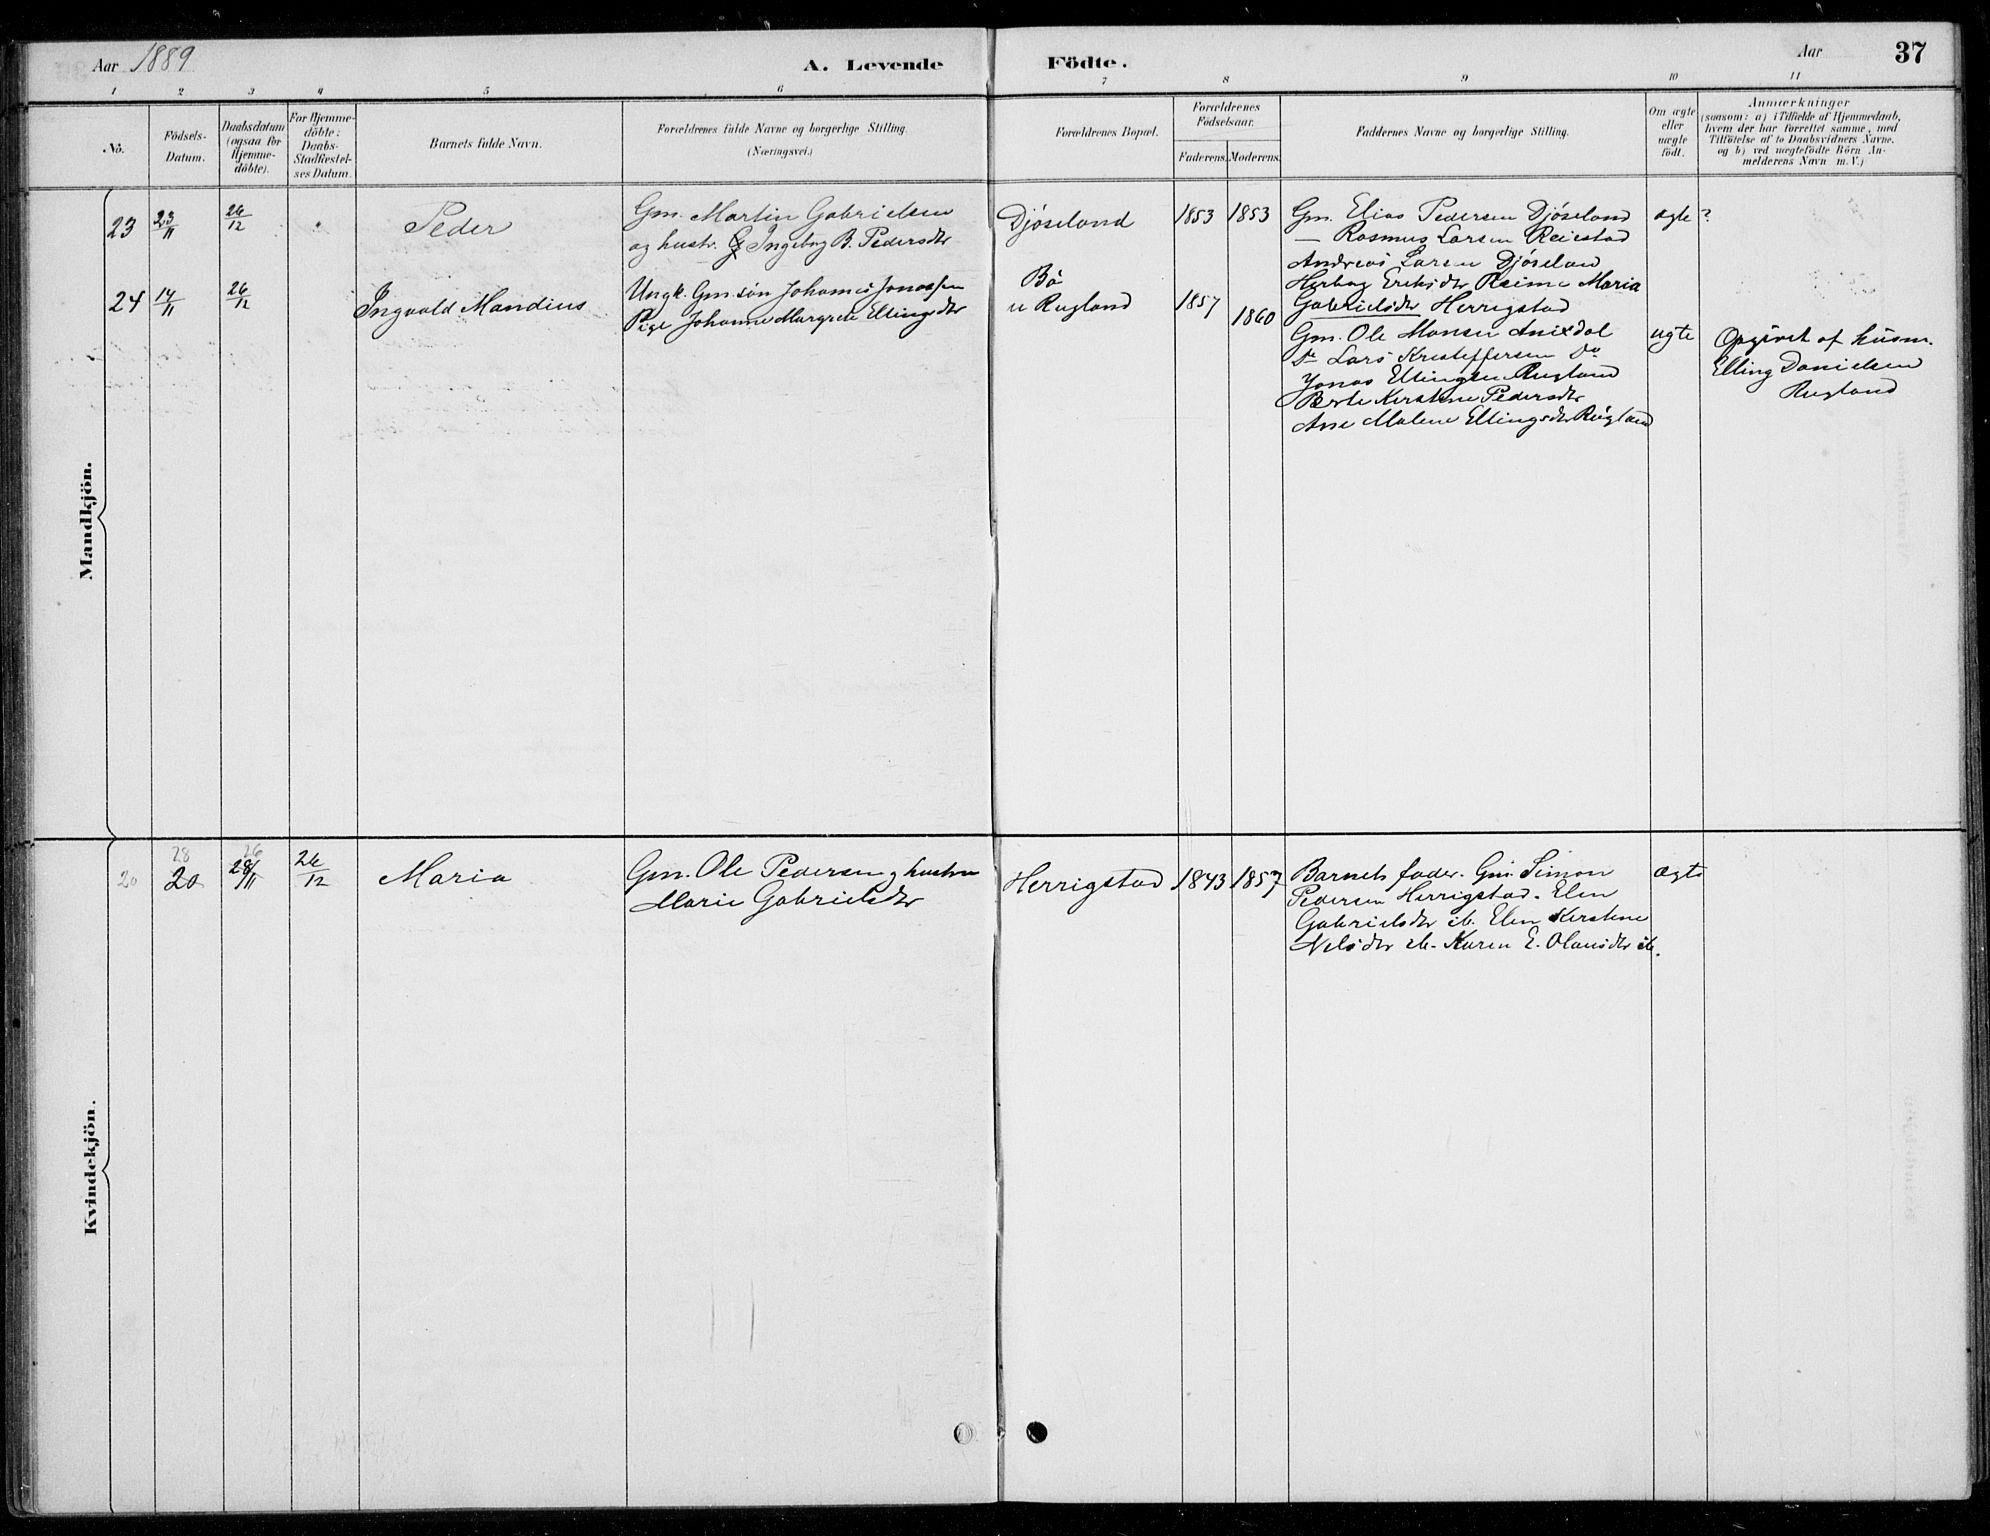 Aar 1889
A. Levende
Födte.
Aar
37
1 2 3 4 5 6 7 8 9 10 11
No.
Födsels-
Datum.
Daabsdatum
(ogsaa for
Hjemme-
döbte).
For Hjemme-
döbte:
Daabs-
Stadfæstel-
ses Datum.
Barnets fulde Navn.
Forældrenes fulde Navne og borgerlige Stilling.
(Næringsvei.)
Forældrenes Bopæl.
Forældrenes
Födselsaar.
Faderens. Moderens.
Faddernes Navne og borgerlige Stilling.
Om ægte
eller
uægte
födt.
Anmærkninger
(saasom: a) i Tilfælde af Hjemmedaab,
hvem der har forrettet samme, med
Tilföielse af to Daabsvidners Navne.
og b) ved uægtefödte Börn An-
melderens Navn m. V.)
Mandkjön.
23 23/11 26/12 Peder
Gm. Martin Gabrielsen
og hustr. Ingebog B. Pedersdtr
Djöseland 1853 1853
Gm. Elias Pedersen Djöseland
— Rasmus Larsen Reiestad
Andreas Larsen Djöselan
Herborg Eriksdtr Reime Maria
Gabrielsdtr Herrigstad
ægte ?
24 14/11 26/12 Ingvald Mandius
Ungk. Gm. sön Johannes Jonassen
Pige Johanne Margrete Ellingsdtr
Bö
u Rugland 1857 1860
Gm. Ole Monsen Anixdal
Do Lars Kristeffersen Do
Jonas Ellingsen Rugland
Berte Kerstine Pedersdtr
Ane Malene Ellingsdtr Rugland
ugte
Opgivet af husm.
Elling Danielsen
Rugland
Kvindekjön.
28 26
20 20 28/11 26/12 Maria
Gm. Ole Pedersen og hustru
Marie Gabrielsdtr
Herrigstad 1843 1857
Barnets fader. Gm. Simon
Pedersen Herrigstad. Elen
Gabrielsdtr ib. Elen Kerstine
Nelsdtr ib. Karen E. Olausdtr ib.
Ægte